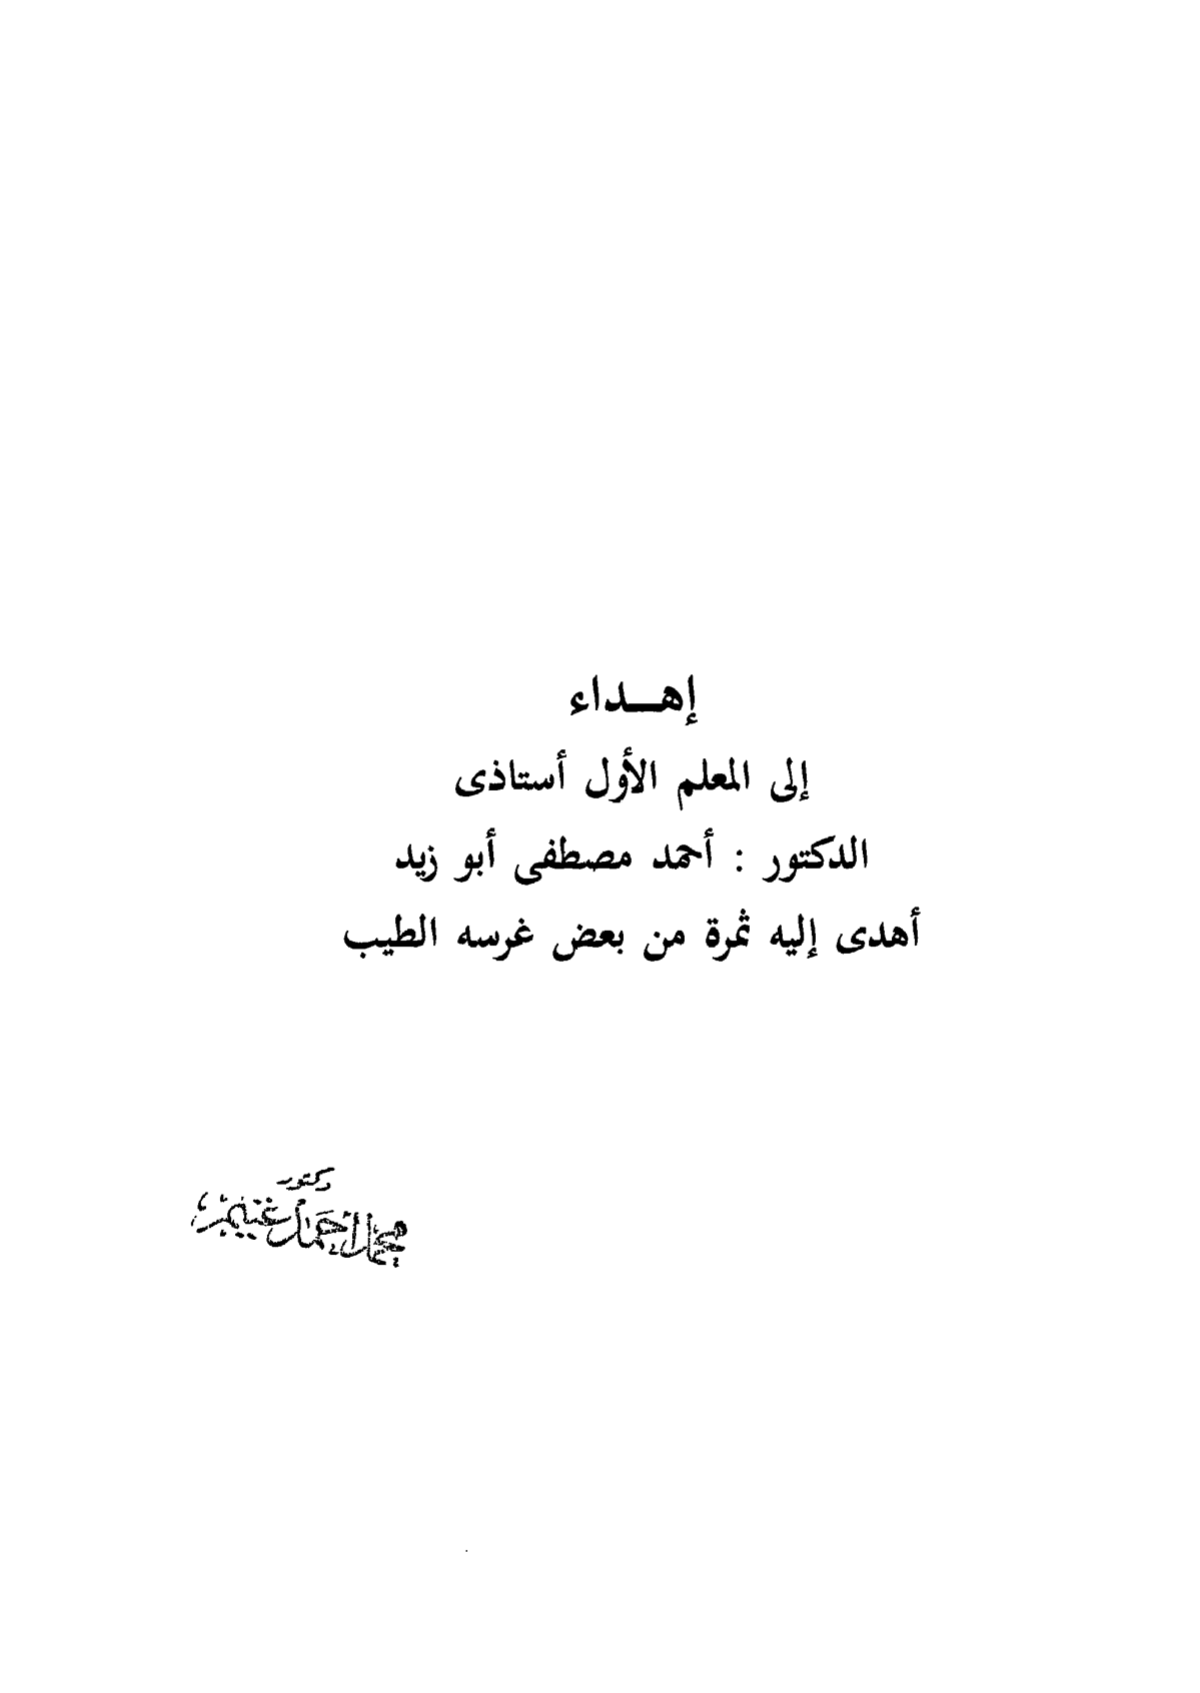 إهـــداء
إلى المعلم الأول أستاذى
الدكتور : أحمد مصطفى أبو زيد
أهدى إليه ثمرة من بعض غرسه الطيب
دكتور
محمد أحمد غنيم